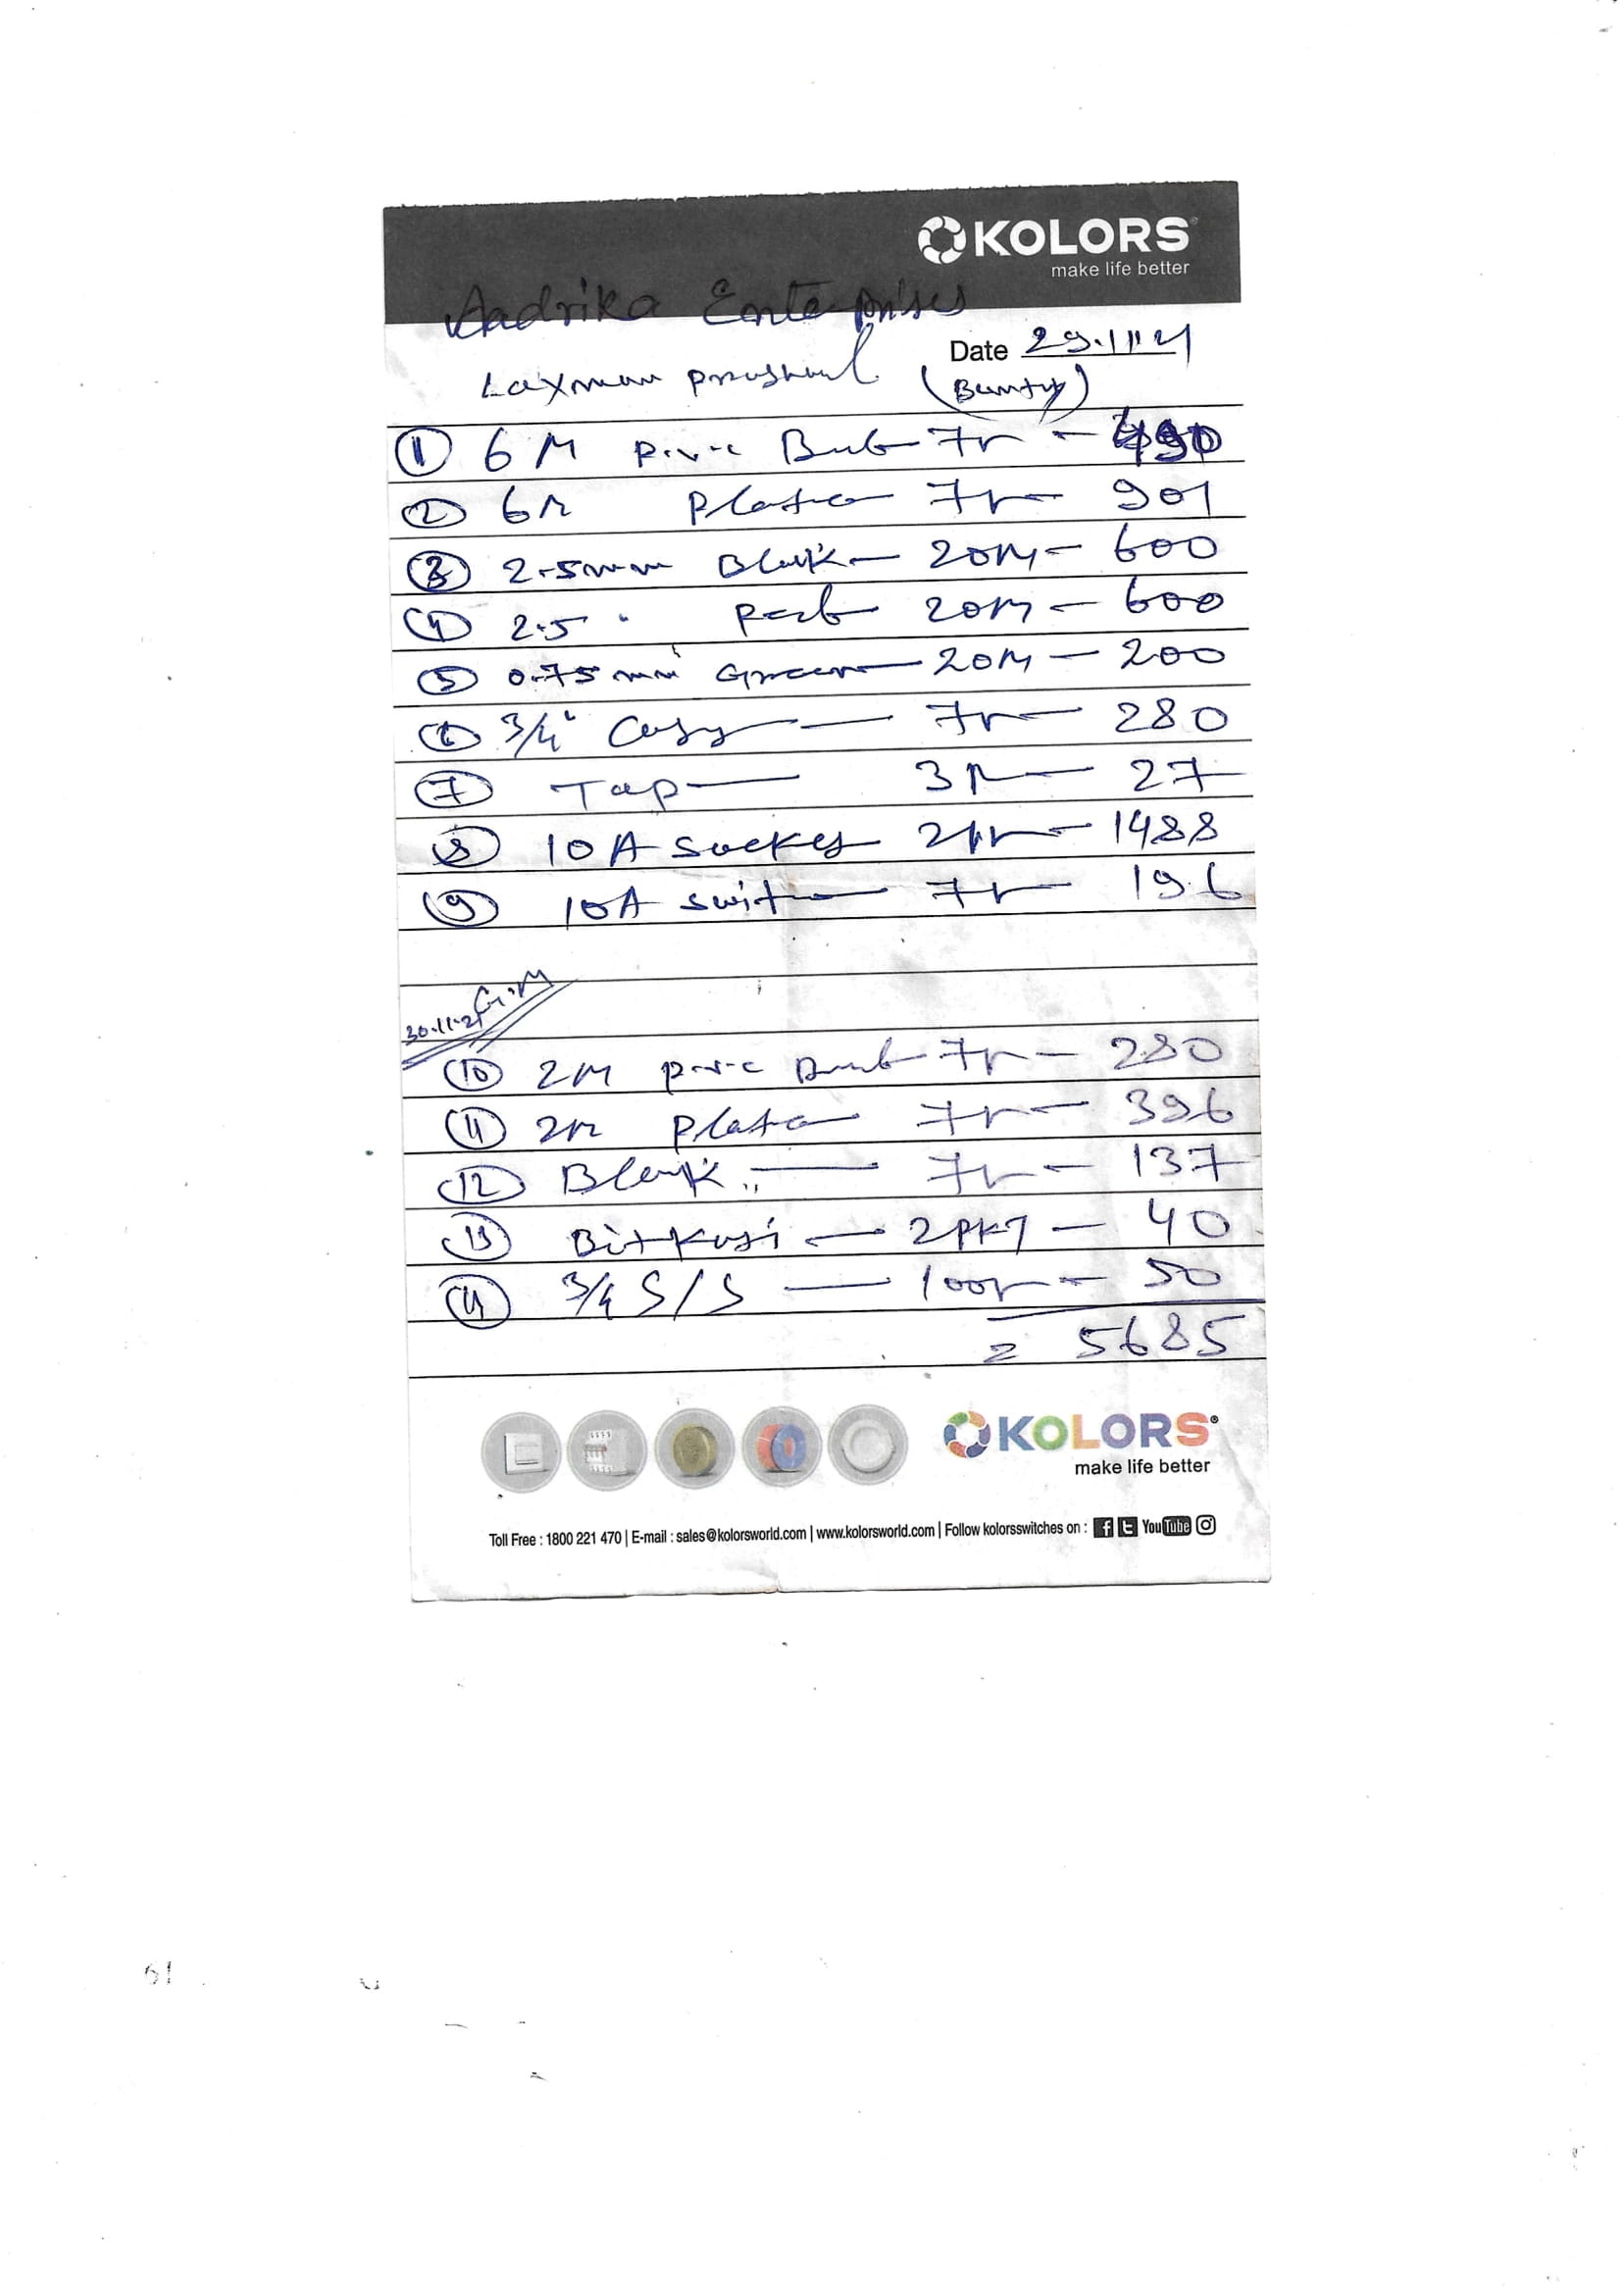 KOLORS
make life better
Aadrika Enterprises
Date 29.11.21
Laxman (Bunty)
① 6M P.V.C 7Pr - 490
② 6M Plate 7Pr - 901
③ 2.5mm Black - 20M - 600
④ 2.5 " Red 20M - 600
⑤ 0.75mm Green - 20M - 200
⑥ 3/4" Casy - 7Pr - 280
⑦ Tap - 3Pr - 27
⑧ 10A Socket 21Pr - 1488
⑨ 10A Switch 7Pr 196
G.M
30.11.21
⑩ 2M P.V.C 7Pr - 280
⑪ 2M Plate 7Pr - 396
⑫ Blank " - 7Pr - 137
⑬ Bitkusi - 2PKT - 40
⑭ 3/4 S/S - 100Pr - 50
= 5685
KOLORS
make life better
Toll Free : 1800 221 470 | E-mail : sales@kolorsworld.com | www.kolorsworld.com | Follow kolorsswitches on : YouTube